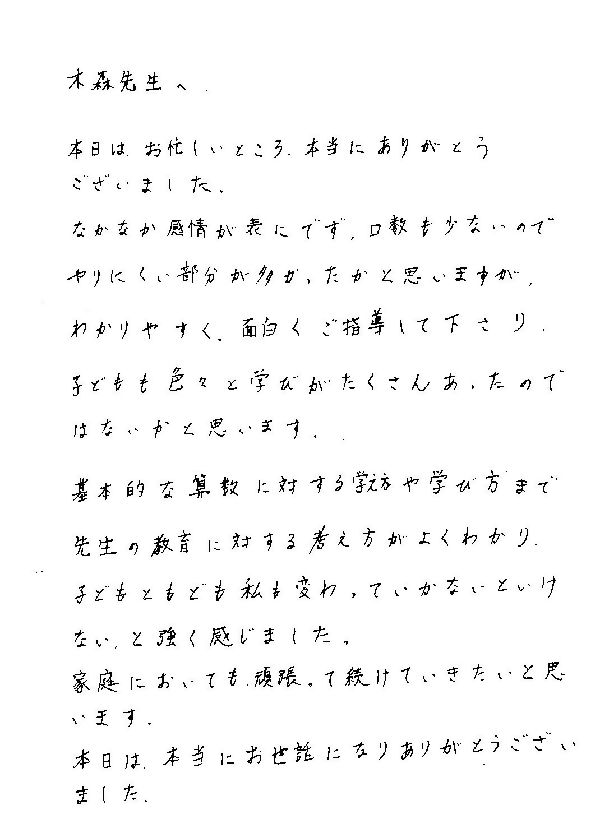 木森先生へ.
本日は、お忙しいところ、本当にありがとう
ございました。
なかなか感情が表にでず、口数も少ないので
やりにくい部分が多かったかと思いますが、
わかりやすく、面白くご指導して下さり、
子どもも色々と学びがたくさんあったので
はないかと思います。
基本的な算数に対する考え方や学び方まで
先生の教育に対する考え方がよくわかり、
子どもともども私も変わっていかないといけ
ない、と強く感じました。
家庭においても、頑張って続けていきたいと思
います。
本日は、本当にお世話になりありがとうござい
ました。